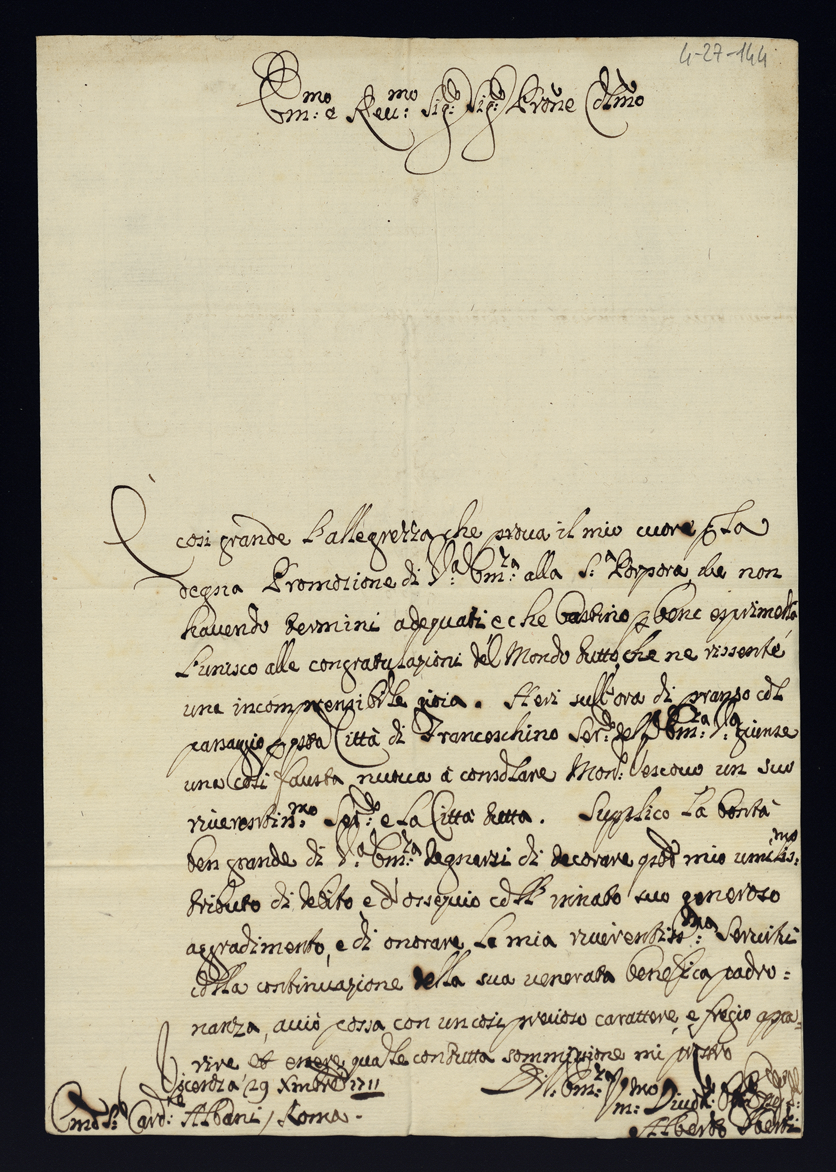 4-27-144
Em:mo e Reu:mo Sig:r Sig:r Prone Colmo
È così grande l'allegrezza che proua il mio cuore p la
degna Promozione di V:a Em:za alla S:a Porpora, che non
hauendo termini adequati e che bastino p bene esprimerla
l'unisco alle congratulazioni del Mondo tutto, che ne rissente
una incomprensibile gioia. Heri sull'ora di pranzo col
passaggio p questa Città di Franceschino Ser:e dell' Em:za V:ra giunse
una così fausta nuoua à consolare Mon:r Vescouo un suo
riuerentiss:mo Ser:e e la Città tutta. Supplico la bontà
ben grande di V:a Em:za degnarsi di decorare questo mio umiliss:mo
tributo di debito e d'ossequio coll' innato suo generoso
aggradimento, e di onorare la mia riuerentiss:ma Seruitù
colla continuazione della sua uenerata benefica padro=
nanza, acciò possa con un così prezioso carattere, e fregio appa=
rire et essere quale con tutta sommissione mi
Vicenza 29 Xmbre 1711
Di V: Em:za
Emo S:r Card:le Albani / Roma.
Alberto